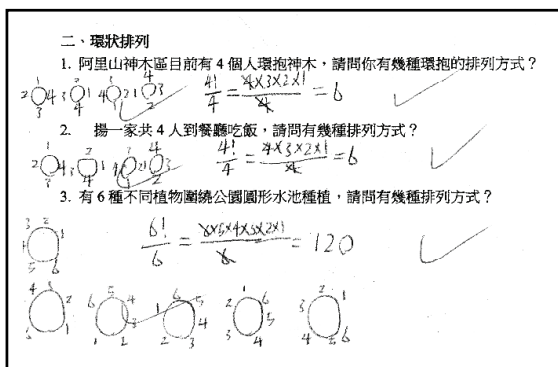 二、環狀排列
1. 阿里山神木區目前有 4 個人環抱神木，請問你有幾種環抱的排列方式？
4!/4 = 4×3×2×1/4 = 6
2. 揚一家共 4 人到餐廳吃飯，請問有幾種排列方式？
4!/4 = 4×3×2×1/4 = 6
3. 有 6 種不同植物圍繞公園圓形水池種植，請問有幾種排列方式？
6!/6 = 6×5×4×3×2×1/6 = 120